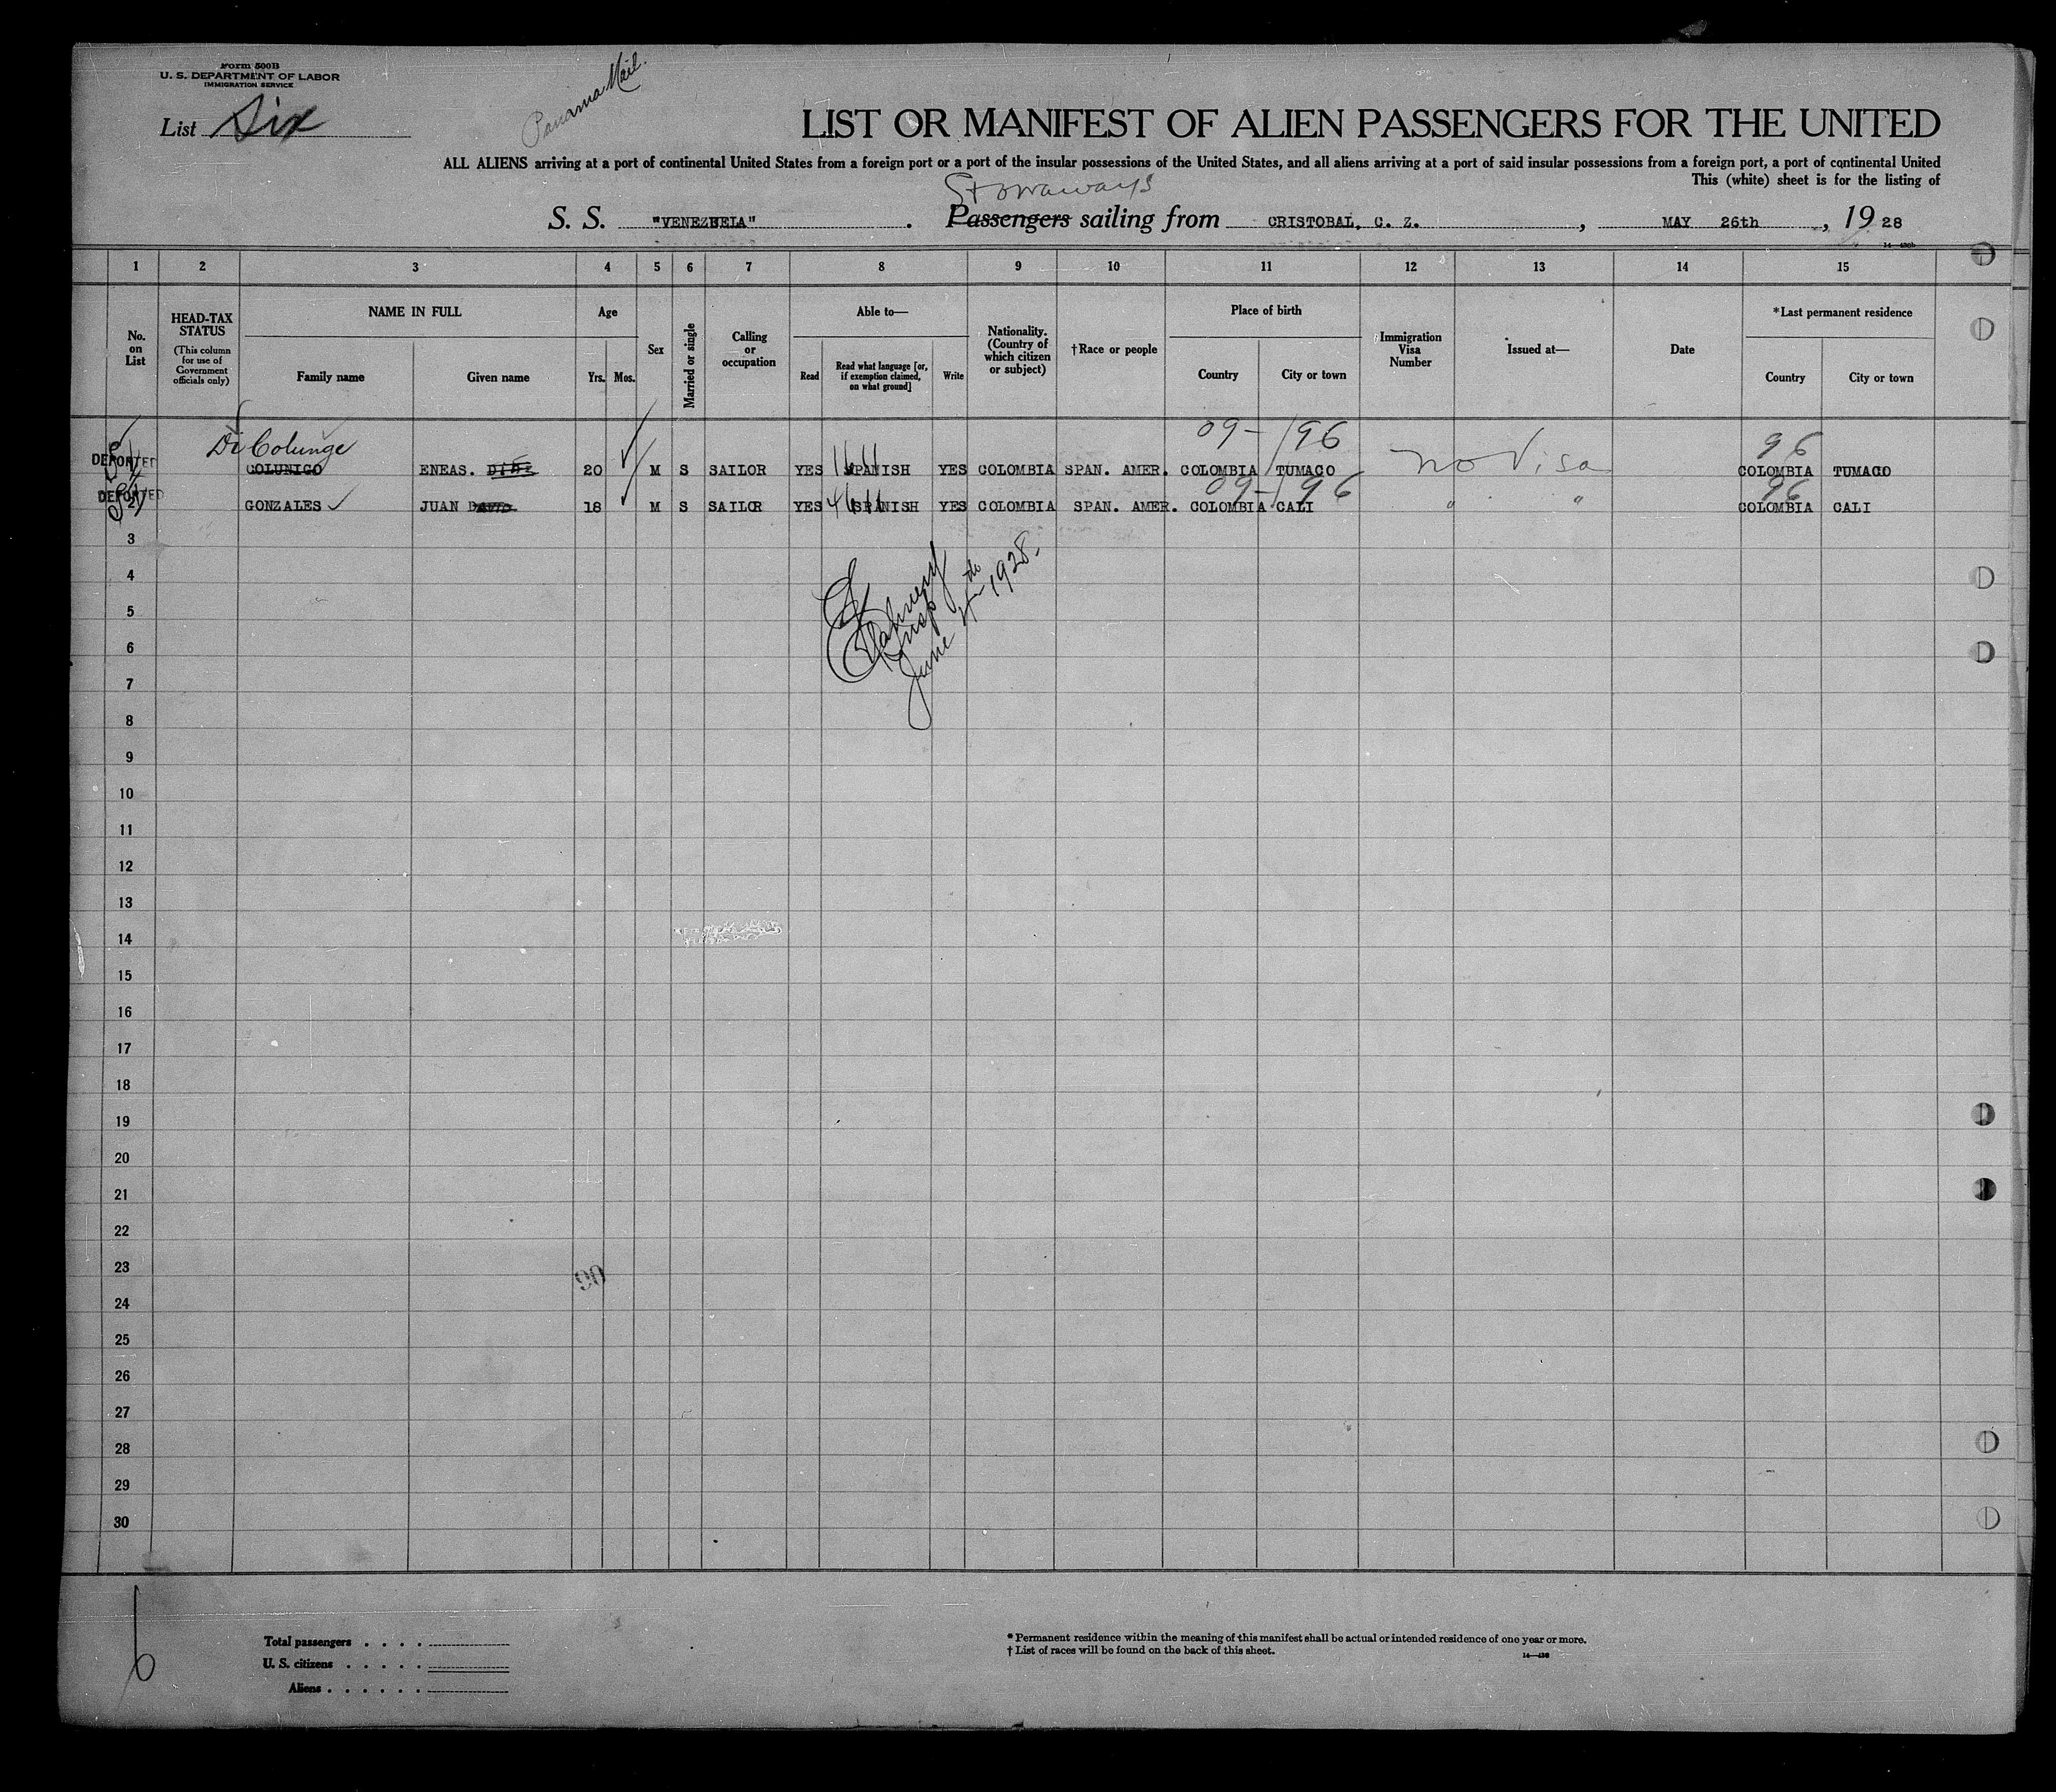 Form 500B
U. S. DEPARTMENT OF LABOR
IMMIGRATION SERVICE
List Six
Panama Mail.
LIST OR MANIFEST OF ALIEN PASSENGERS FOR THE UNITED
ALL ALIENS arriving at a port of continental United States from a foreign port or a port of the insular possessions of the United States, and all aliens arriving at a port of said insular possessions from a foreign port, a port of continental United
This (white) sheet is for the listing of
Stowaways
S. S. "VENEZUELA" . Passengers sailing from CRISTOBAL, C. Z. , MAY 26th , 19 28
1 2 3 4 5 6 7 8 9 10 11 12 13 14 15
No. on List
HEAD-TAX STATUS
(This column for use of Government officials only)
NAME IN FULL
Family name Given name
Age
Yrs. Mos.
Sex
Married or single
Calling or occupation
Able to—
Read Read what language [or, if exemption claimed, on what ground] Write
Nationality. (Country of which citizen or subject)
†Race or people
Place of birth
Country City or town
Immigration Visa Number
Issued at—
Date
*Last permanent residence
Country City or town
Di Colunge 09-196 96
DEPORTED COLUNIGO ENEAS. 20 M S SAILOR YES SPANISH YES COLOMBIA SPAN. AMER. COLOMBIA TUMACO no Visa COLOMBIA TUMACO
09-196 96
DEPORTED 2 GONZALES JUAN DAVID 18 M S SAILOR YES SPANISH YES COLOMBIA SPAN. AMER. COLOMBIA CALI " " COLOMBIA CALI
3
4
5
6
7
8
9
10
11
12
13
14
15
16
17
18
19
20
21
22
23
24
25
26
27
28
29
30
Insp
June 4th 1928.
6
Total passengers . . . .
U. S. citizens . . . . .
Aliens . . . . . .
* Permanent residence within the meaning of this manifest shall be actual or intended residence of one year or more.
† List of races will be found on the back of this sheet.